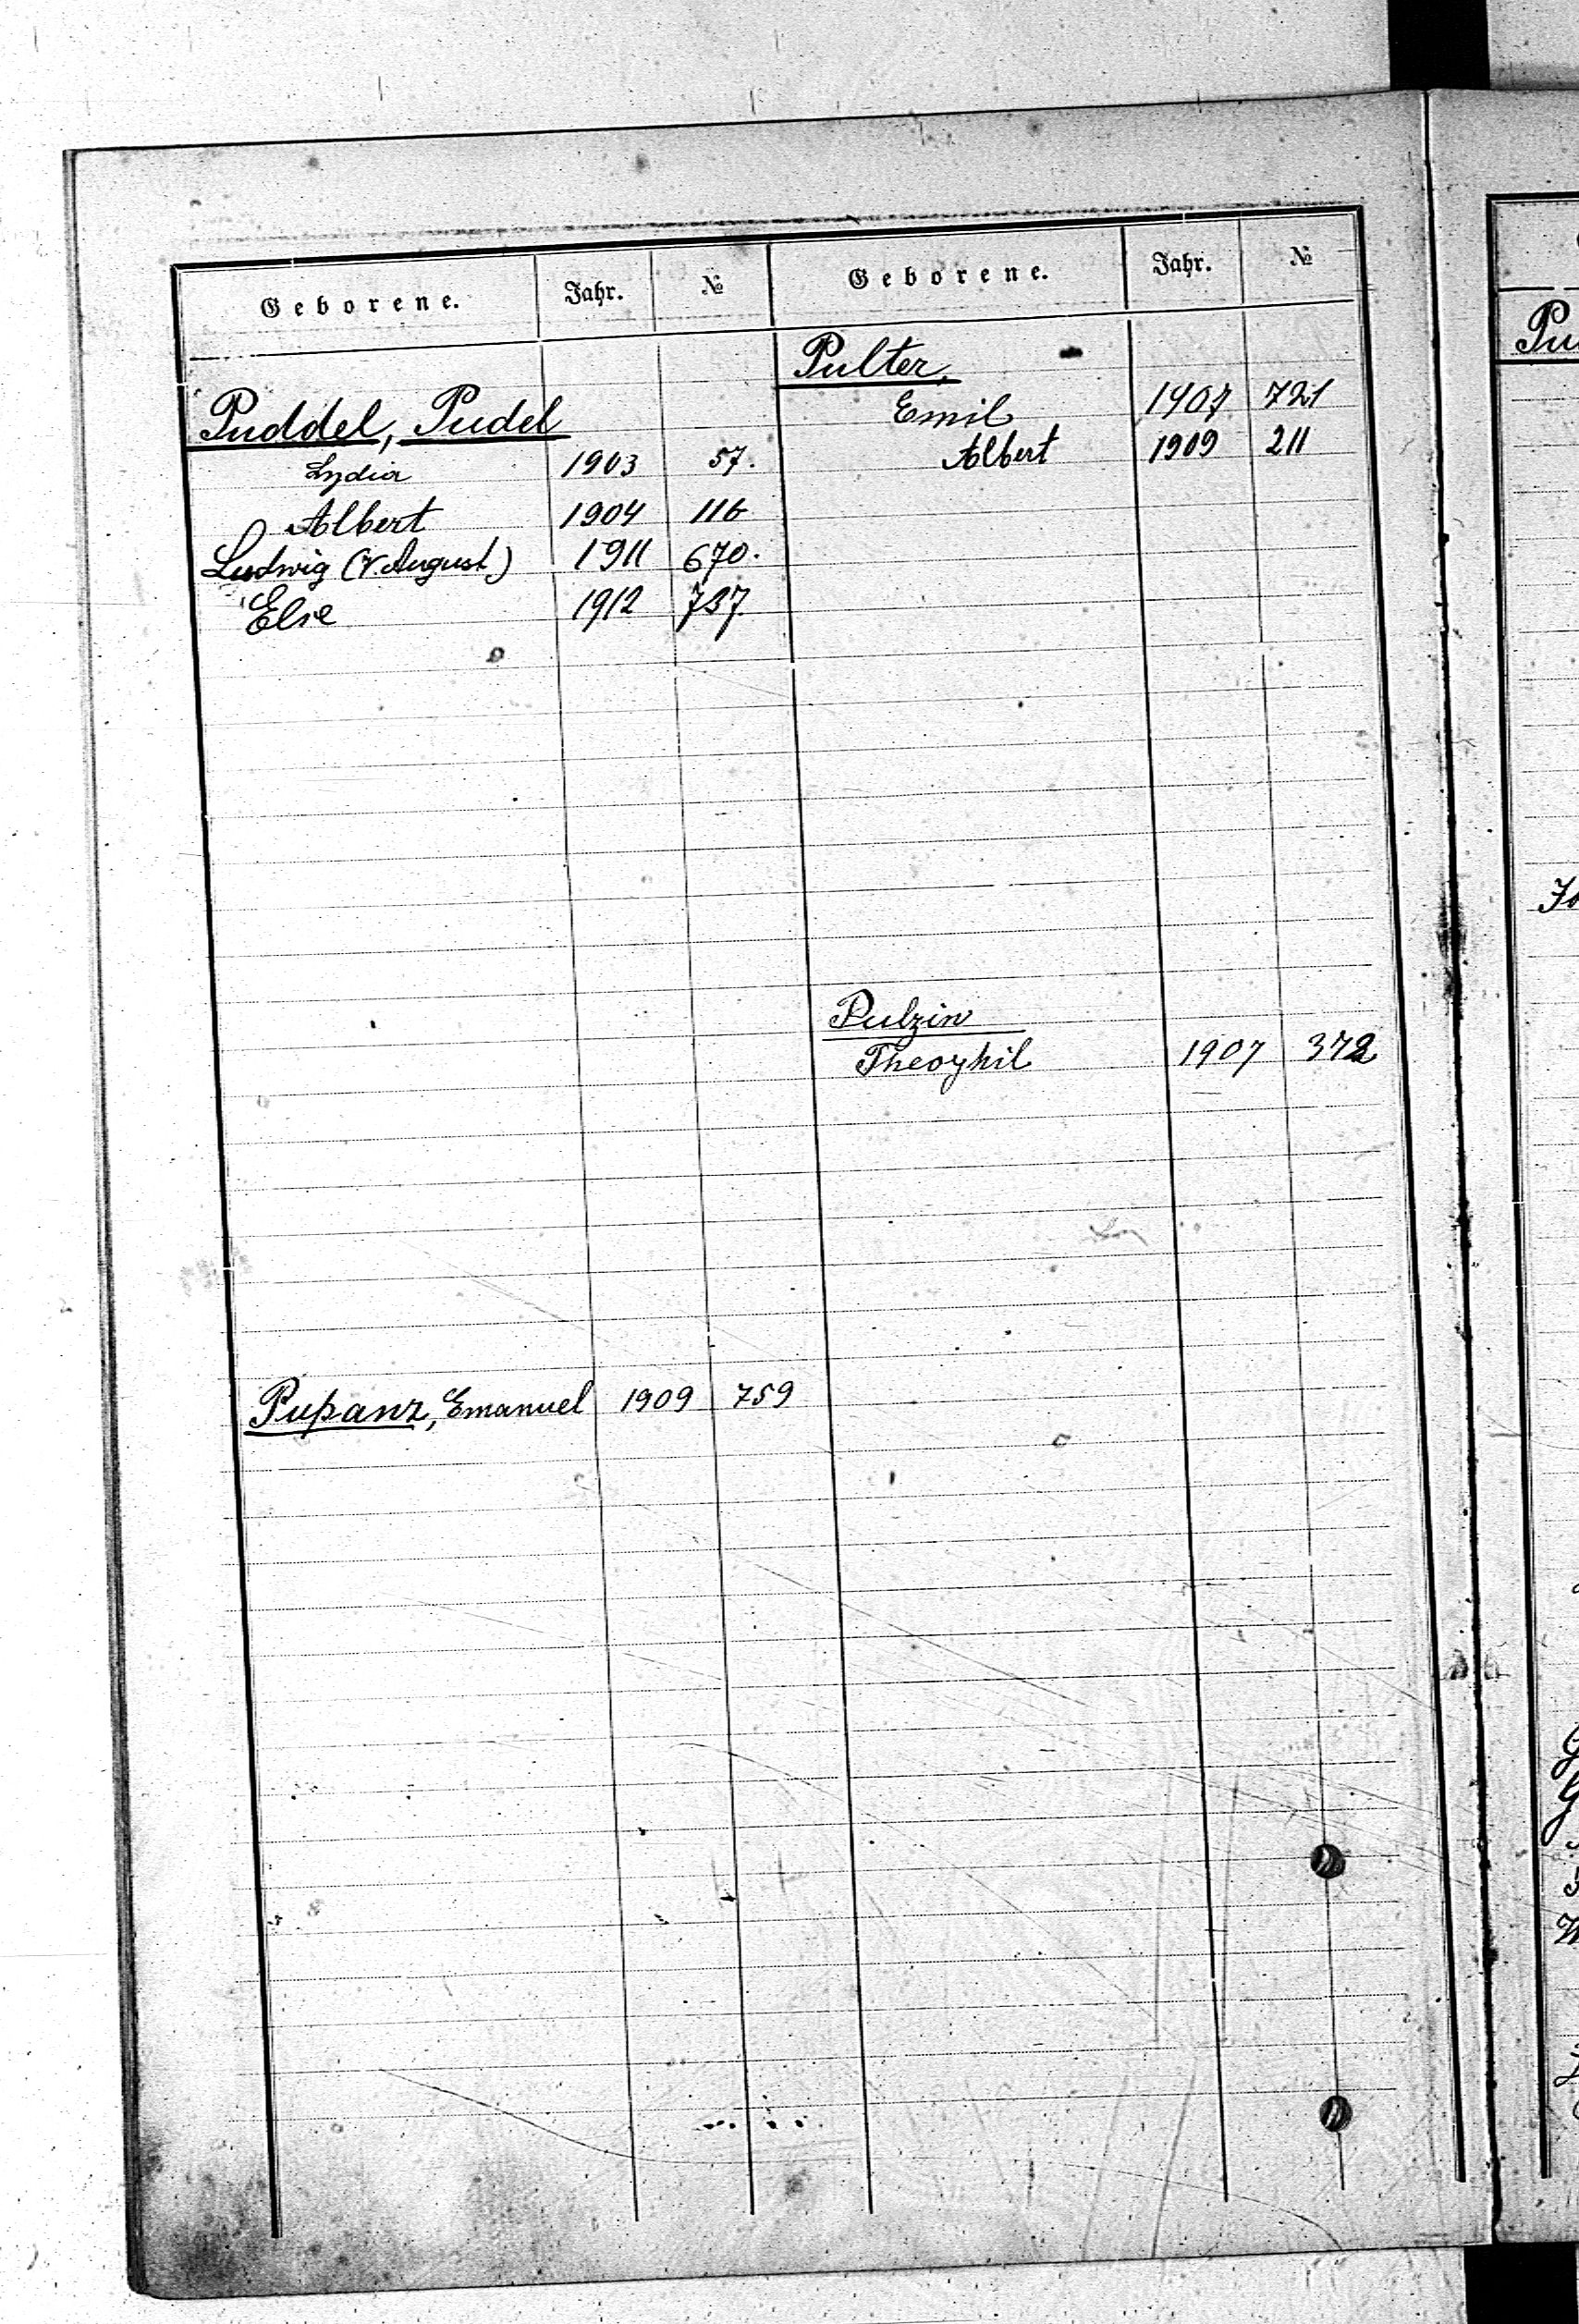 Geborene. Jahr. №
Puddel, Pudel
Lydia 1903 57.
Albert 1904 116
Ludwig (V. August) 1911 670.
Else 1912 737
Pupanz, Emanuel 1909 759
Geborene. Jahr. №
Pulter,
Emil 1907 721
Albert 1909 211
Pulzin
Theophil 1907 372
Pu